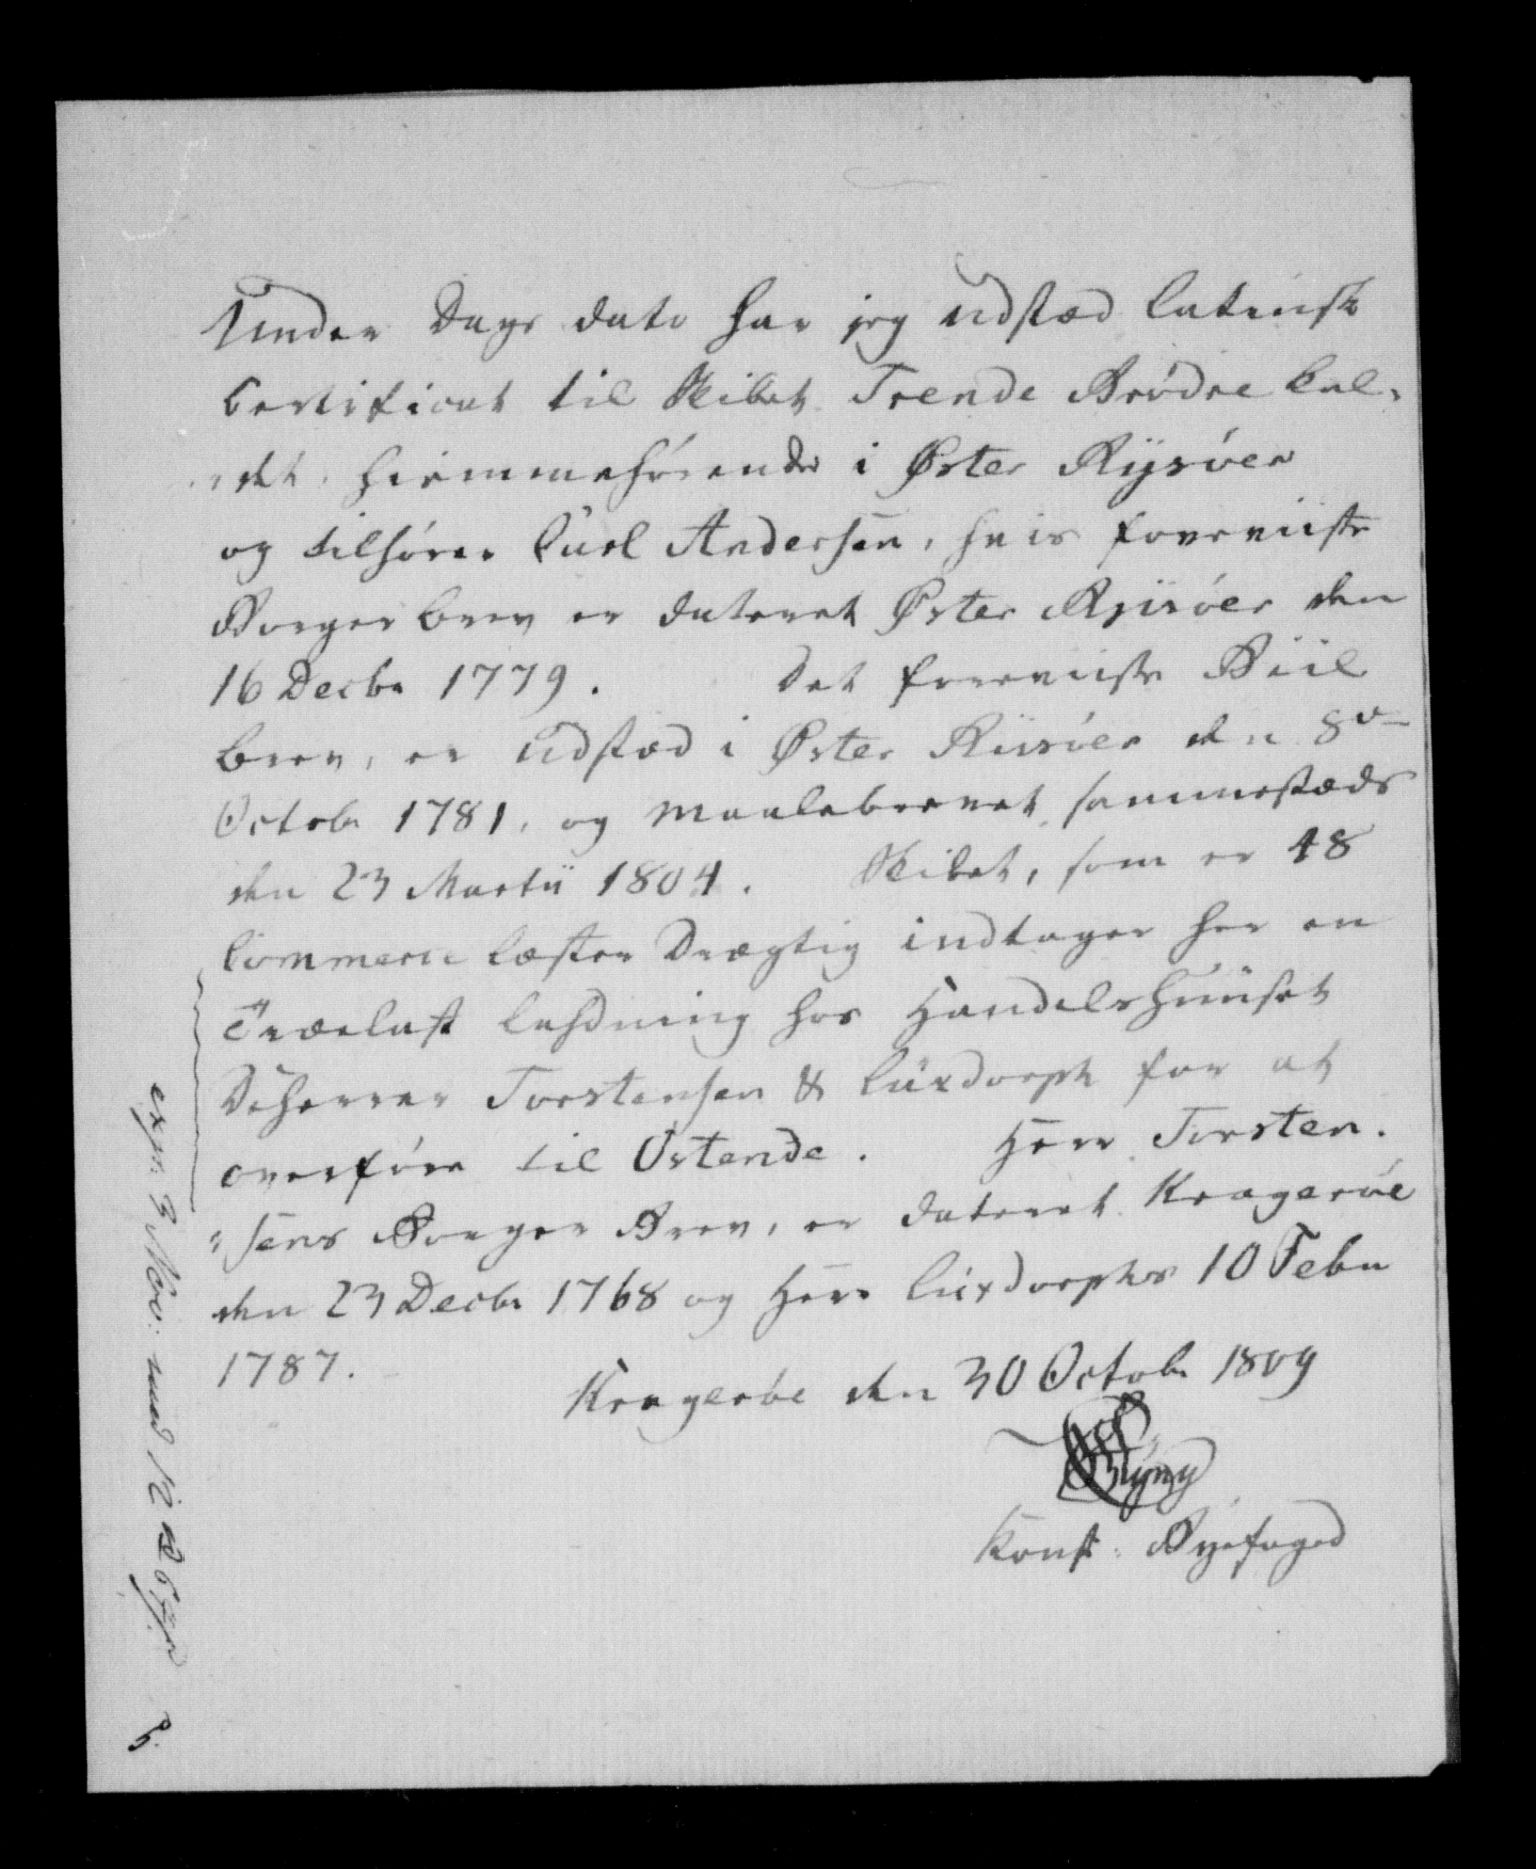 Under Dags dato har jeg udstæd latinsk
Certificat til Skibet Trende Brødre kal-
-det, hiemmehørende i Øster Rijsöer
og tilhører Carl Andersen, hvis foreviiste
Borgerbrev er dateret Øster Rjisöer den
16 Decbr 1779. Det foreviiste Biil
brev, er udstæd i Øster Riisöer den 8de
Octobr 1781, og Maalebrevet sammestæds
den 23 Martii 1804. Skibet, som er 48
Commerce læster Drægtig indtager her en
Trælast ladning hos Handelshuuset
DeHerrer Torstensen & Luxdorph for at
overføre til Ostende. Herr Torsten.
:sens Borger Brev, er dateret Kragerøe
den 23 Decbr 1768 og Herr Luxdorphs 10 Febr
1787.
Kragerøe den 30 Octobr 1809
Konst: Byefoged
exp: 3 Nov: med